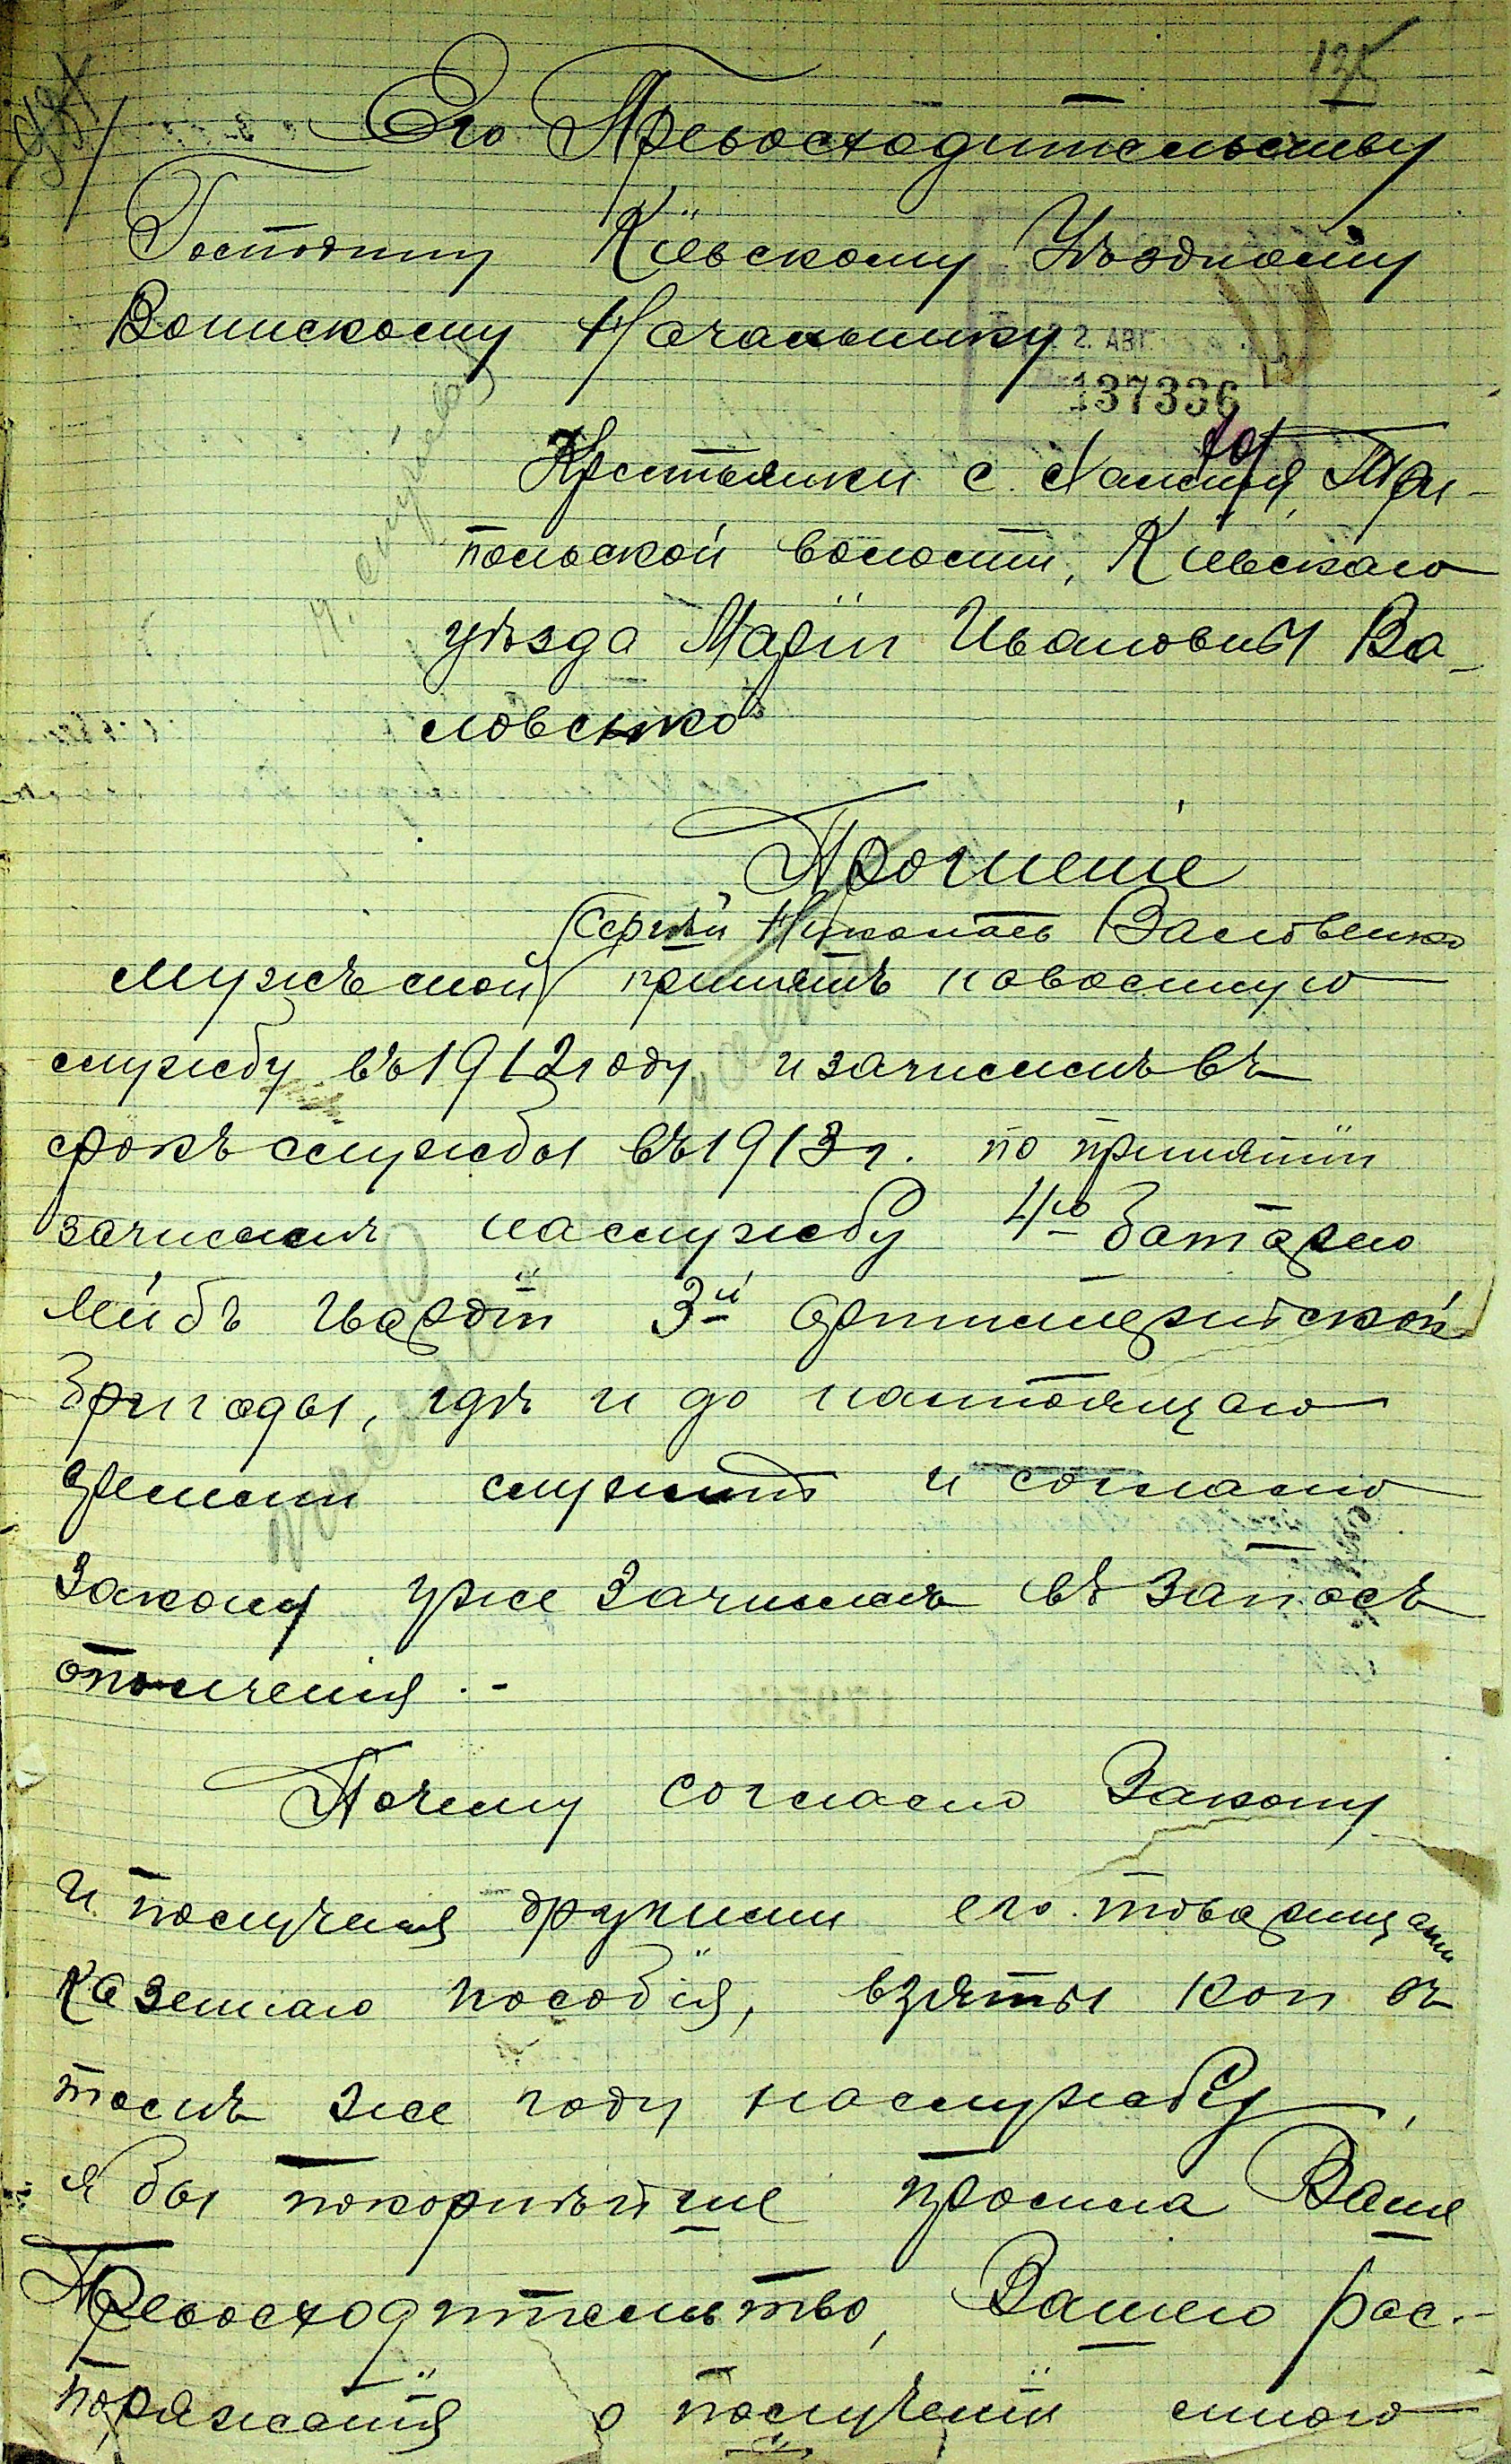 125
Его Превосходительству
Господину Кіевскому Уѣздному
Воинскому Начальнику
2. АВГ.
137336
Крестьянки с. Триполья, Три-
польской волости, Кіевскаго
уѣзда Маріи Ивановны Ва-
ловенко
Прошеніе
Сергѣй Николаевъ Валовенко
мужъ мой принятъ на военную
службу въ 1912 году и зачисленъ въ
срокъ службы въ 1913 г. по принятіи
зачисленъ на службу 4ю батарею
Лейбъ гвардіи 3й артиллерійской
бригады, гдѣ и до настоящаго
времени служитъ и согласно
закону уже зачисленъ въ запасъ
ополченія.-
Почему согласно Закону
и полученія другими его товарищами
казеннаго пособія, взяты кои въ
томъ же году на службу,
я бы покорнѣйше просила Ваше
Превосходительство, Вашего рас-
поряженія о полученіи мною